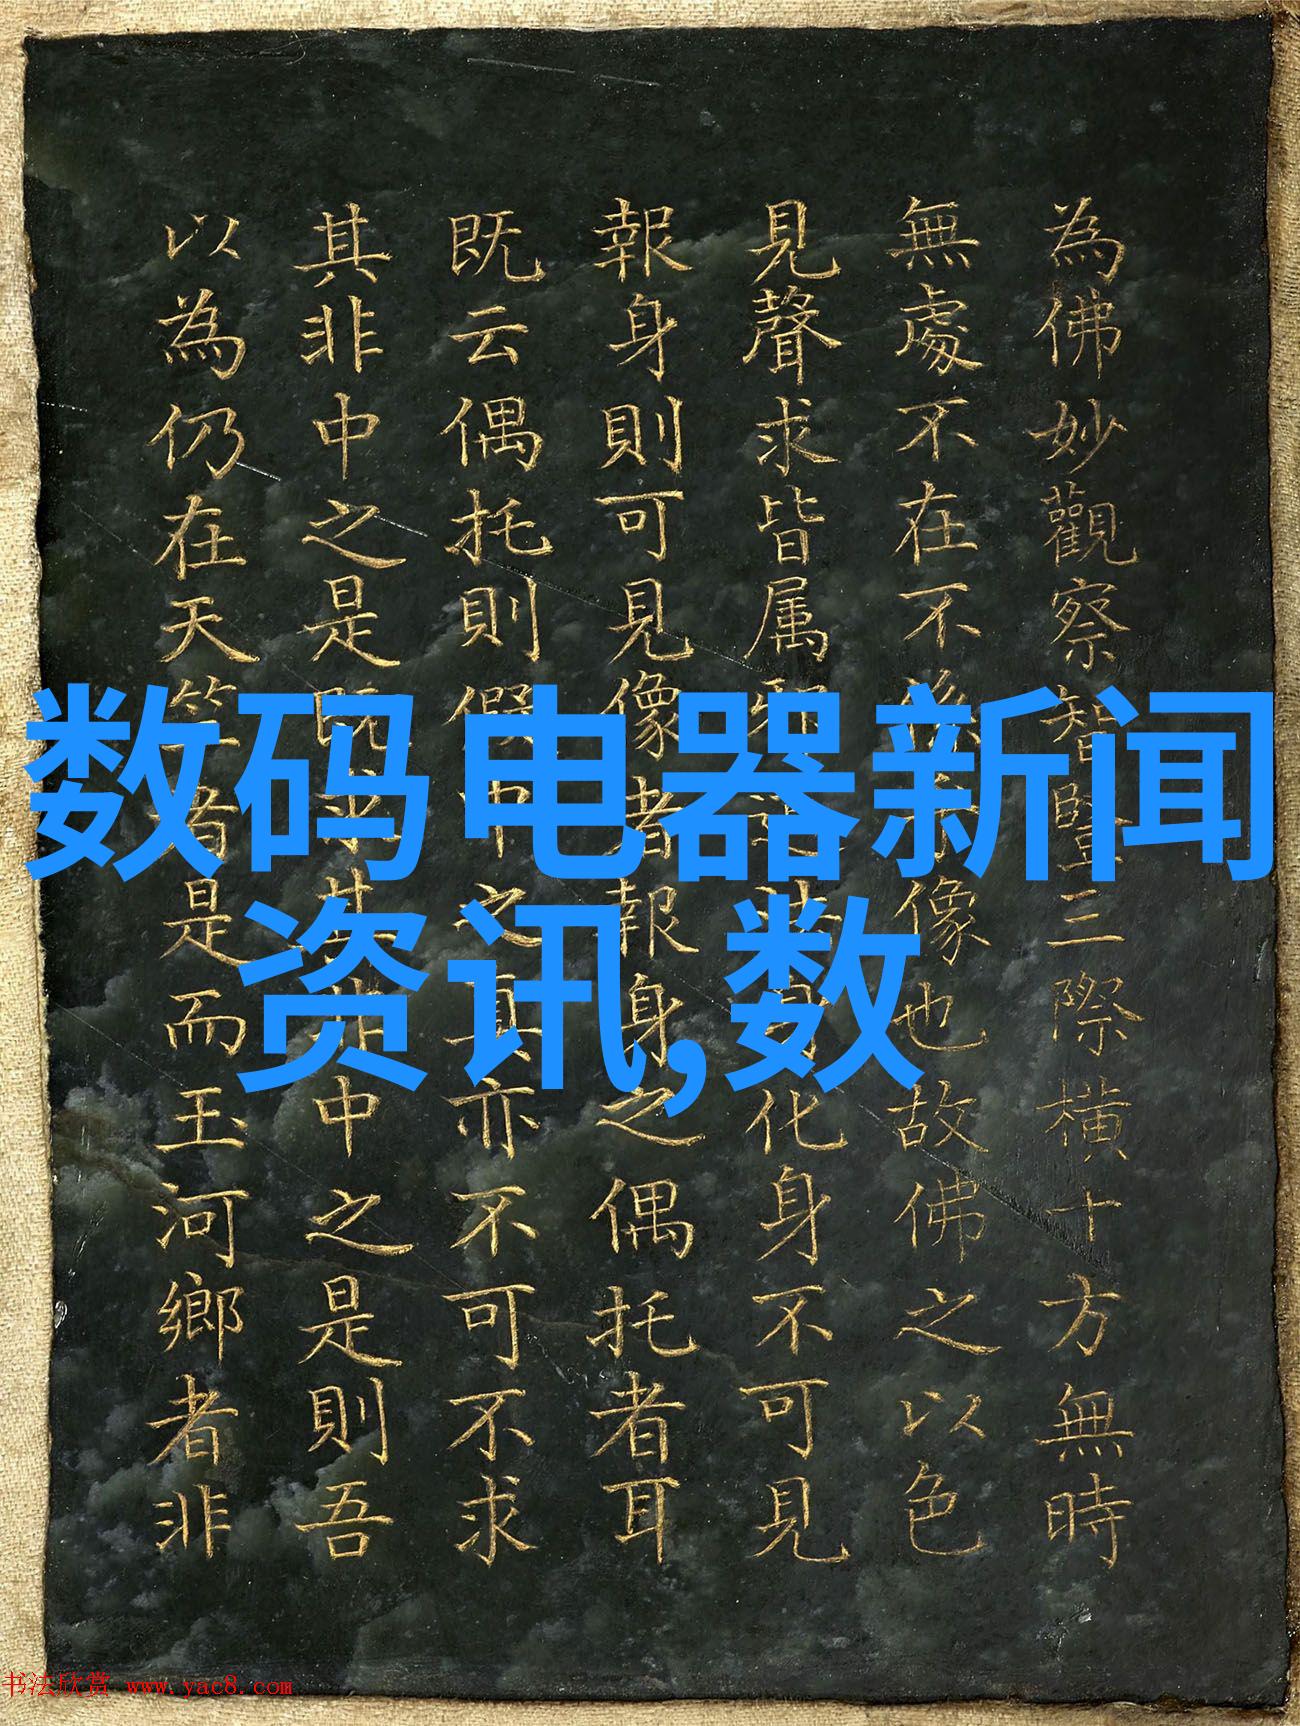 為佛妙觀察智豎三際橫十方無時
無處不在不像也故佛之以色
見聲求皆属邪道法身化身不可見
報身則可見像者報身之偶托者耳
既云偶托則假中之真亦不可不求
其非中之是既求其非中之是則吾
以為仍在天竺者是而玉河鄉者非
数码电器新闻
资讯,数
书法欣赏 www.yac8.com